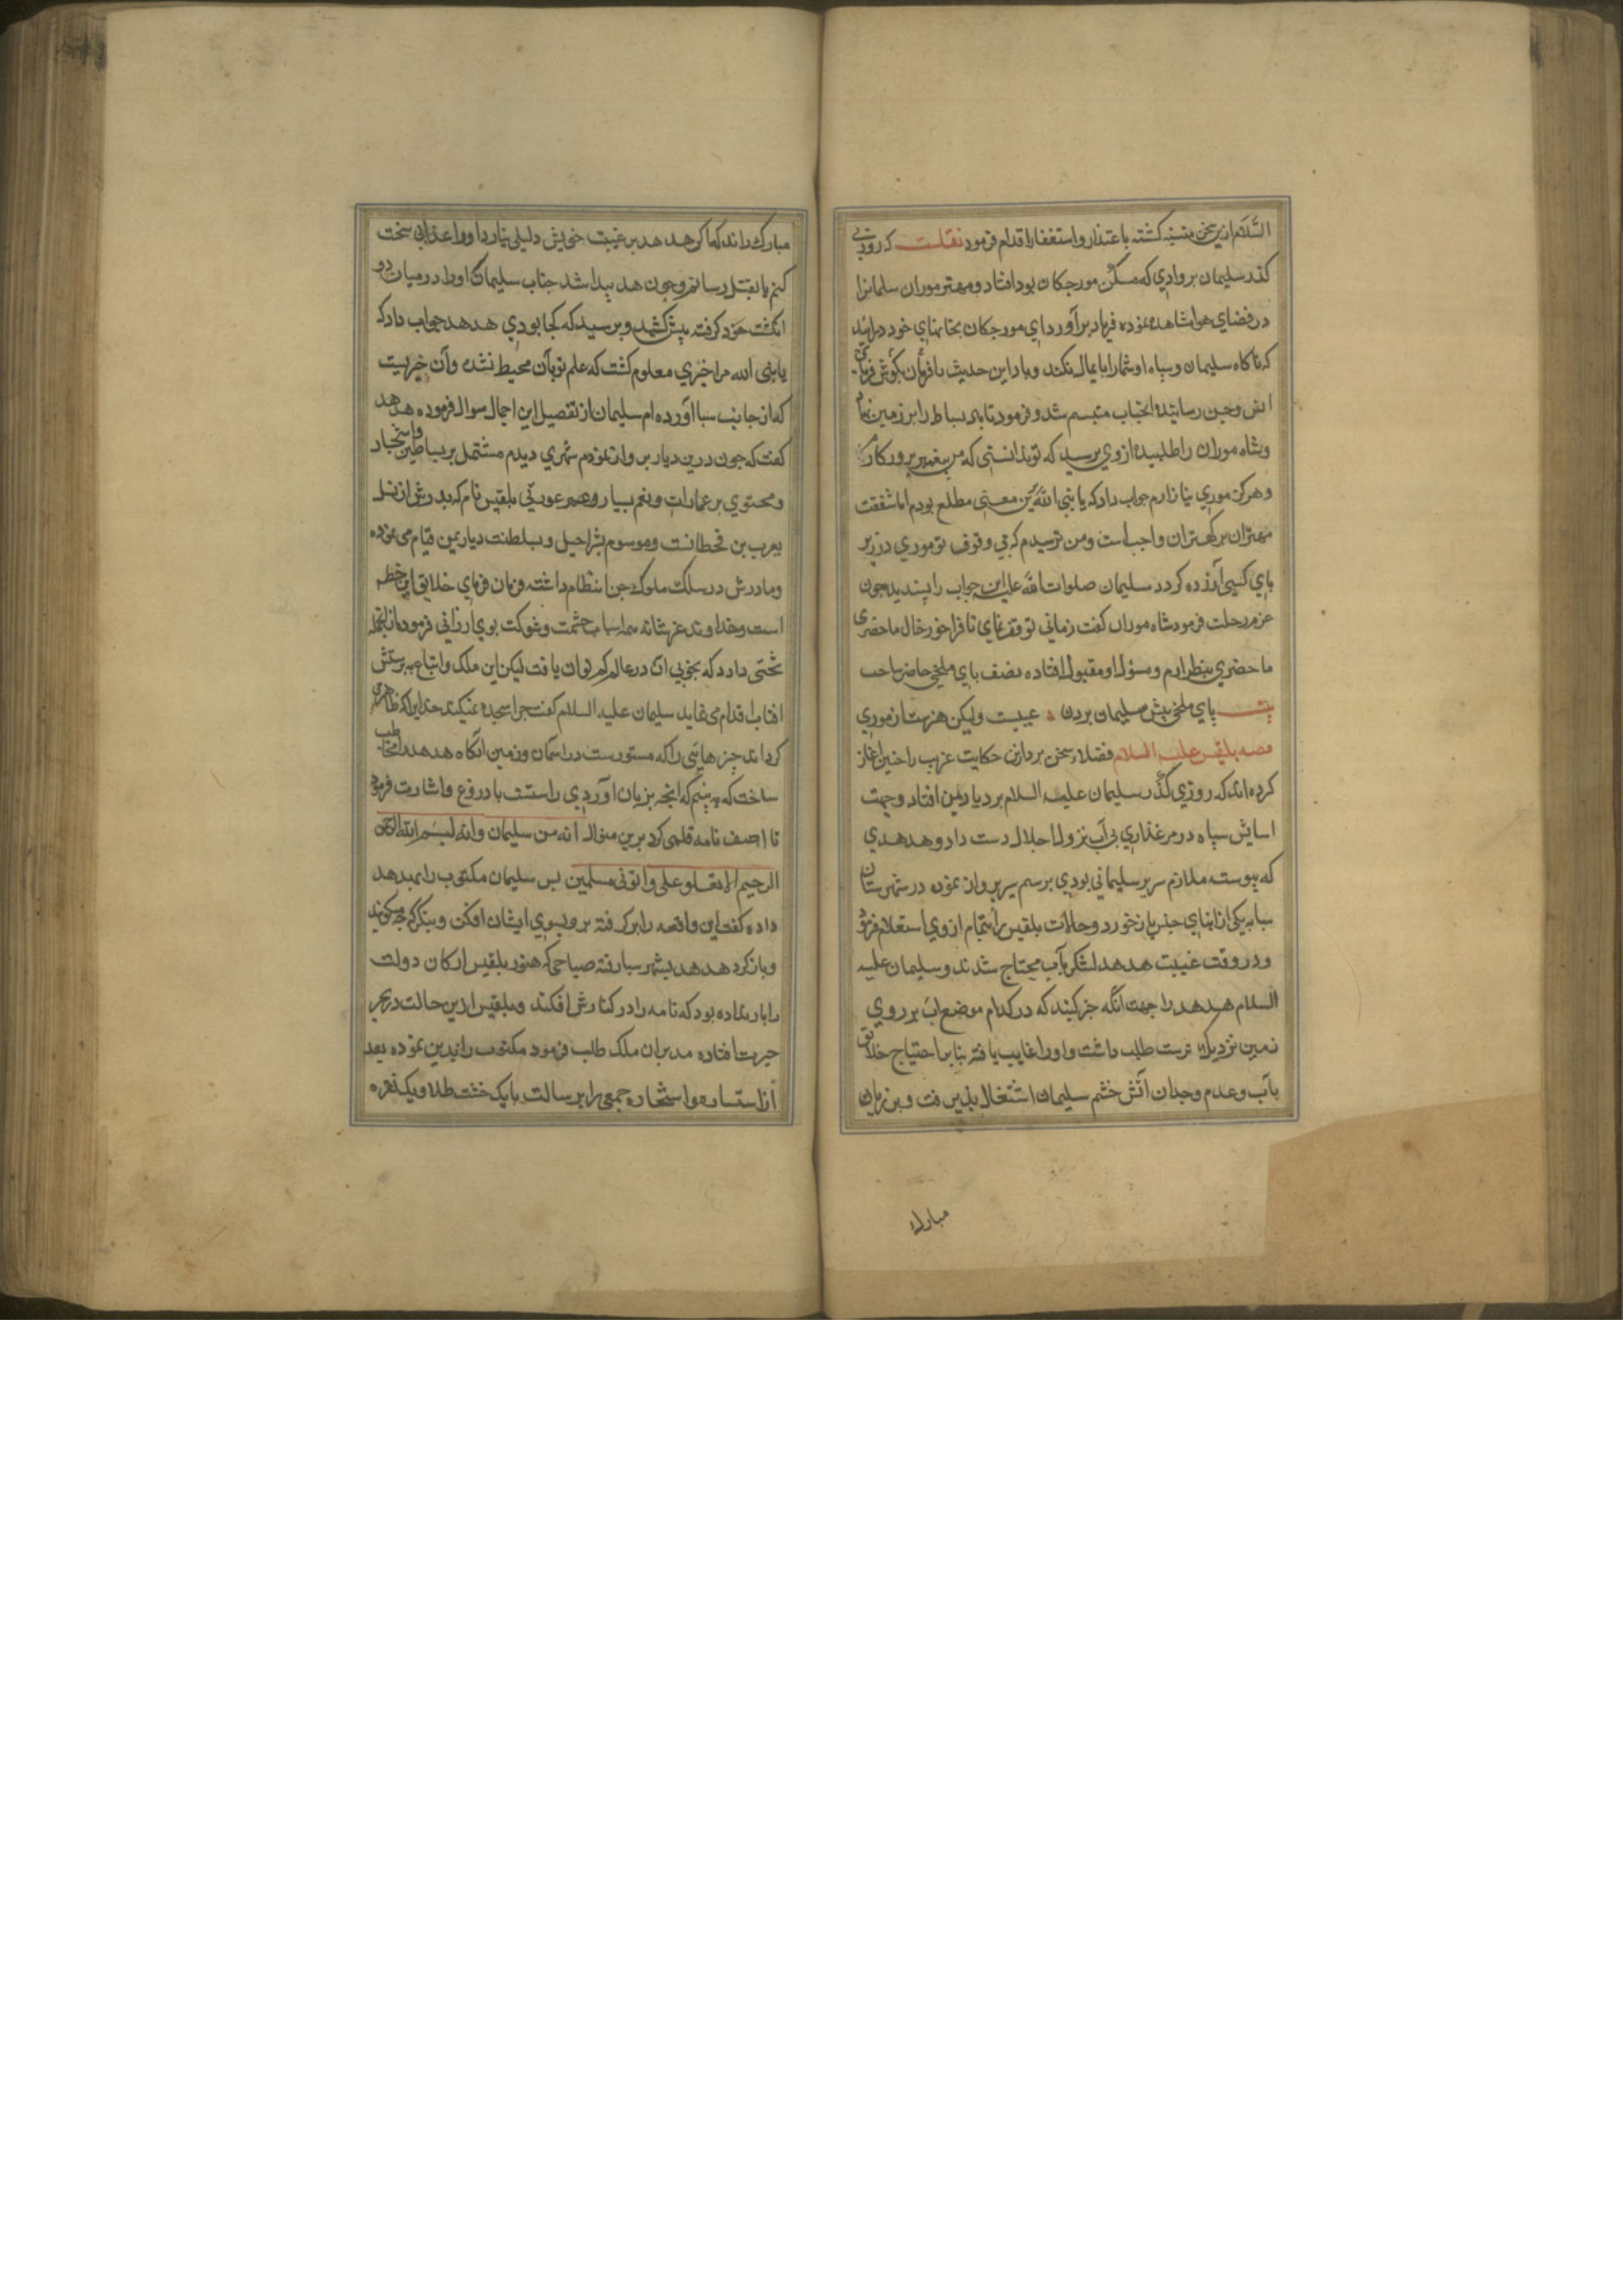 السَّلام ازین سخن متنبه کشته باعتذار واستغفار اقدام فرمود نقلست که روزی
کذر سلیمان بر وادی که مسکن مورجکان بود افتاد ومهتر موران سلیمانرا
در فضای هوا مشاهده نموده فریاد برآورد ای مورجکان بخانهای خود درآیید
که ناکاه سلیمان وسپاه او شمارا پایمال نکند وباد این حدیث بکوش
انس وجن رسانیده متبسم شد وفرمود تا باد بساط را بر زمین
وشاه موران را طلبیده از وی پرسید که تو ندانستی که من پیغمبر پرورکارم
وهرکز موری نیازارم جواب داد که یا نبی الله برین معنی مطلع بودم اما شفقت
مهتران بر کهتران واجب است ومن ترسیدم که بی وقوف تو موری در زیر
پای کسی آزرده کردد سلیمان صلوات الله علیه این جواب را پسندید جون
عزم رحلت فرمود شاه موران کفت زمانی توقف نمای تا فراخور حال ماحضری
ماحضری بنظر ارم ومسؤل او مقبول افتاده نصف پای ملخی حاضر ساخت
بیت پای ملخی پیش سلیمان بردن عیبست ولیکن هنرست از موری
قصه بلقیس علیه السلام فضلاء سخن پرداز این حکایت غریب را جنین اغاز
کرده اند که روزی کذر سلیمان علیه السلام بر دیار یمن افتاد وجهت
اسایش سپاه در مرغذاری بی آب نزول اجلال دست داد وهدهدی
که پیوسته ملازم سریر سلیمانی بودی برسم سیر پرواز نموده در شهرستان
سبا به یکی از ابنای جنس بازخورد وحالات بلقیس را بتمام از وی استعلام فرمود
ودر وقت غیبت هدهد لشکر بآب محتاج شدند وسلیمان علیه
السلام هدهد را جهت آنکه خبر کند که در کدام موضع اب بر روی
زمین نزدیک ترست طلب داشت واورا غایب یافته بنابر احتیاج خلائق
بآب وعدم وجدان آتش خشم سلیمان اشتغال پذیرفت وبر زبان
مبارک
مبارک راند که اکر هدهد بر غیبت خویش دلیلی نیارد اورا عذابی سخت
کنم یا بقتل رسانم وجون هدهد پیدا شد جناب سلیمان اورا در میان دو
انکشت خود کرفته پیش کشید وپرسید که کجا بودی هدهد جواب داد که
یا نبی الله مرا خبری معلوم کشت که علم تو بآن محیط نشده وآن خبریست
که از جانب سبا آورده ام سلیمان از تفصیل این اجمال سوال فرموده هدهد
کفت که جون درین دیار پرواز نمودم شهری دیدم مشتمل بر بساطین واشجار
ومحتوی بر عمارات ونعم بسیار وعورتی بلقیس نام که پدرش از نسل
یعرب بن قحطانست وموسوم بشراحیل وبسلطنت دیار یمن قیام می نموده
ومادرش در سلک ملوک جن انتظام داشته فرمان فرمای خلایق این خطه
است وخداوند عز شانه همه اسباب حشمت وشوکت بوی ارزانی فرموده ازانجمله
تختی دارد که بخوبی ان در عالم کم توان یافت لیکن این ملک واتباع به پرستش
افتاب اقدام می نماید سلیمان علیه السلام کفت جرا سجده نمیکنند خدایرا که ظاهر
کرداند جیزهایی را که مستورست در اسمان وزمین آنکاه هدهد را مخاطب
ساخت که به بینم که انجه بزبان آوردی راستست یا دروغ واشارت فرمود
تا اصف نامه قلمی کرد برین منوال انه من سلیمان وانه بسم الله الرحمن
الرحیم الا تعلو علی واتونی مسلمین پس سلیمان مکتوب را بهدهد
داده کفت این واقعه را برکرفته برو بسوی ایشان افکن وبنکر که جه میکویند
وبازکرد هدهد بشهر سبا رفته صباحی که هنوز بلقیس ارکان دولت
را بار نداده بود که نامه را در کنارش افکند وبلقیس ازین حالت در بحر
حیرت افتاده مدبران ملک طلب فرمود مکتوب را بدیشان نموده بعد
از استشاره واستخاره جمعی را برسالت با یک خشت طلا ویک نقره